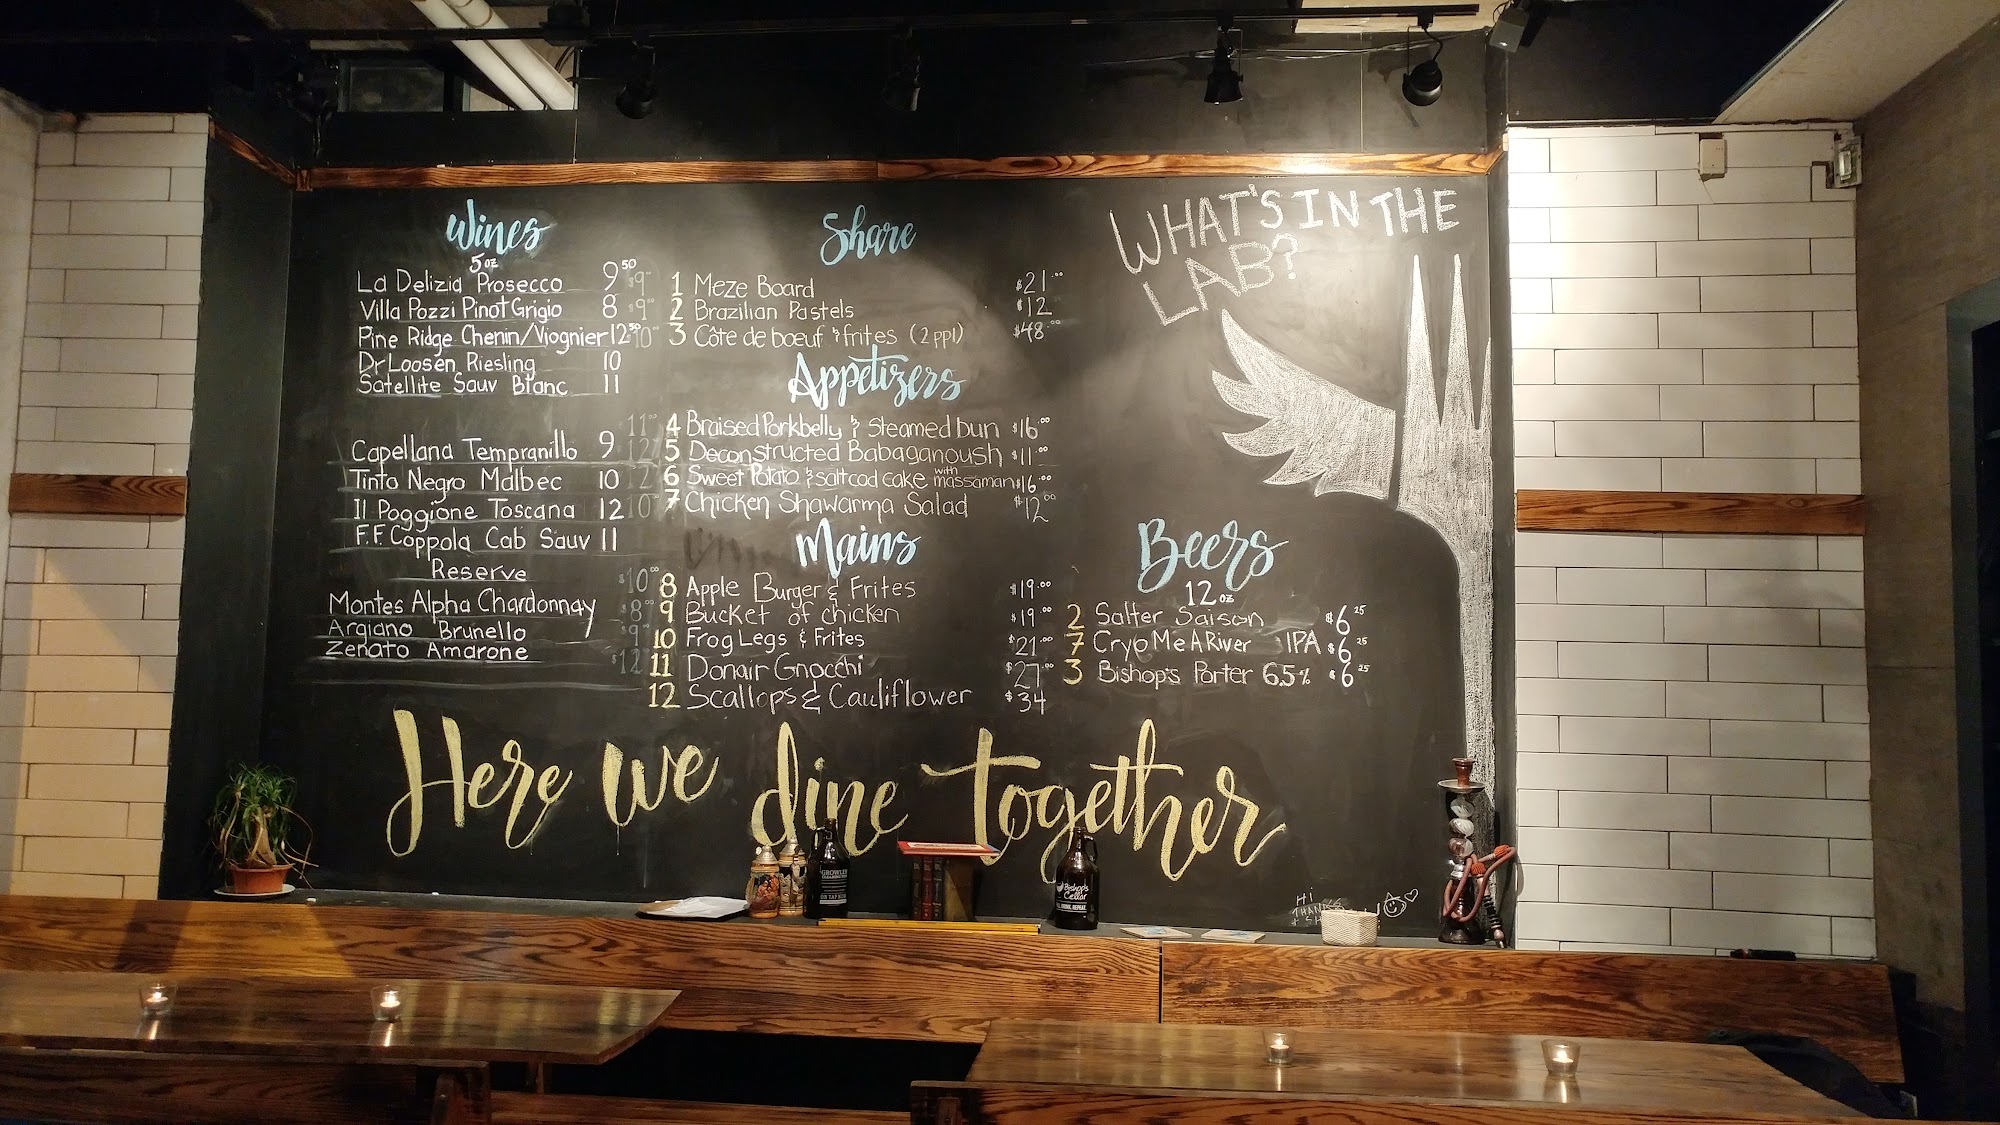 Wines
5 oz
La Delizia Prosecco 9 50
Villa Pozzi Pinot Grigio 8
Pine Ridge Chenin/Viognier 12 50
Dr Loosen Riesling 10
Satellite Sauv Blanc 11
Capellana Tempranillo 9
Tinto Negro Malbec 10
Il Poggione Toscana 12
F.F. Coppola Cab Sauv 11
Reserve
Montes Alpha Chardonnay
Argiano Brunello
Zenato Amarone
Share
1 Meze Board $21.00
2 Brazilian Pastels $12
3 Côte de boeuf & frites (2 ppl) $48.00
Appetizers
4 Braised Porkbelly & Steamed bun $16.00
5 Deconstructed Babaganoush $11.00
6 Sweet Potato & saltcod cake with massaman $16.00
7 Chicken Shawarma Salad $12.00
Mains
8 Apple Burger & Frites $19.00
9 Bucket of chicken $19.00
10 Frog Legs & Frites $21.00
11 Donair Gnocchi $27.00
12 Scallops & Cauliflower $34
WHAT'S IN THE
LAB?
Beers
12 oz
2 Salter Saison $6 25
7 Cryo Me A River IPA $6 25
3 Bishop's Porter 6.5% $6 25
Here we dine together
GROWLER
Bishop's
Cellar
HI
THANKS